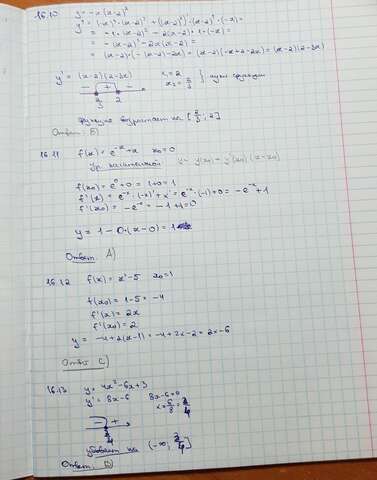 16.10 y = -x(x-2)²
y' = (-x)'·(x-2)² + ((x-2)²)'·(x-2)'·(-x) =
= -1·(x-2)² - 2(x-2)·1·(-x) =
= -(x-2)² - 2x(x-2) =
= (x-2)·(-(x-2)-2x) = (x-2)(-x+2-2x) = (x-2)(2-3x)
y' = (x-2)(2-3x) x=2
x₂ = 2/3 } нули функции
- + -
2/3 2
Функция возрастает на [2/3; 2]
Ответ: B)
16.11 f(x) = e^(-x) + x x₀=0
Ур. касательной y = y(x₀) + y'(x₀)(x-x₀)
f(x₀) = e⁰ + 0 = 1+0 = 1
f'(x) = e^(-x)·(-x)' + x' = e^(-x)·(-1)+0 = -e^(-x)+1
f'(x₀) = -e^(-x) = -1+1=0
y = 1 - 0·(x-0) = 1
Ответ. A)
16.12 f(x) = x²-5 x₀=1
f(x₀) = 1-5 = -4
f'(x) = 2x
f'(x₀) = 2
y = -4+2(x-1) = -4+2x-2 = 2x-6
Ответ C)
16.13 y = 4x²-6x+3
y' = 8x-6 8x-6=0
x = 6/8 = 3/4
- +
3/4
убывает на (-∞; 3/4]
Ответ. D)